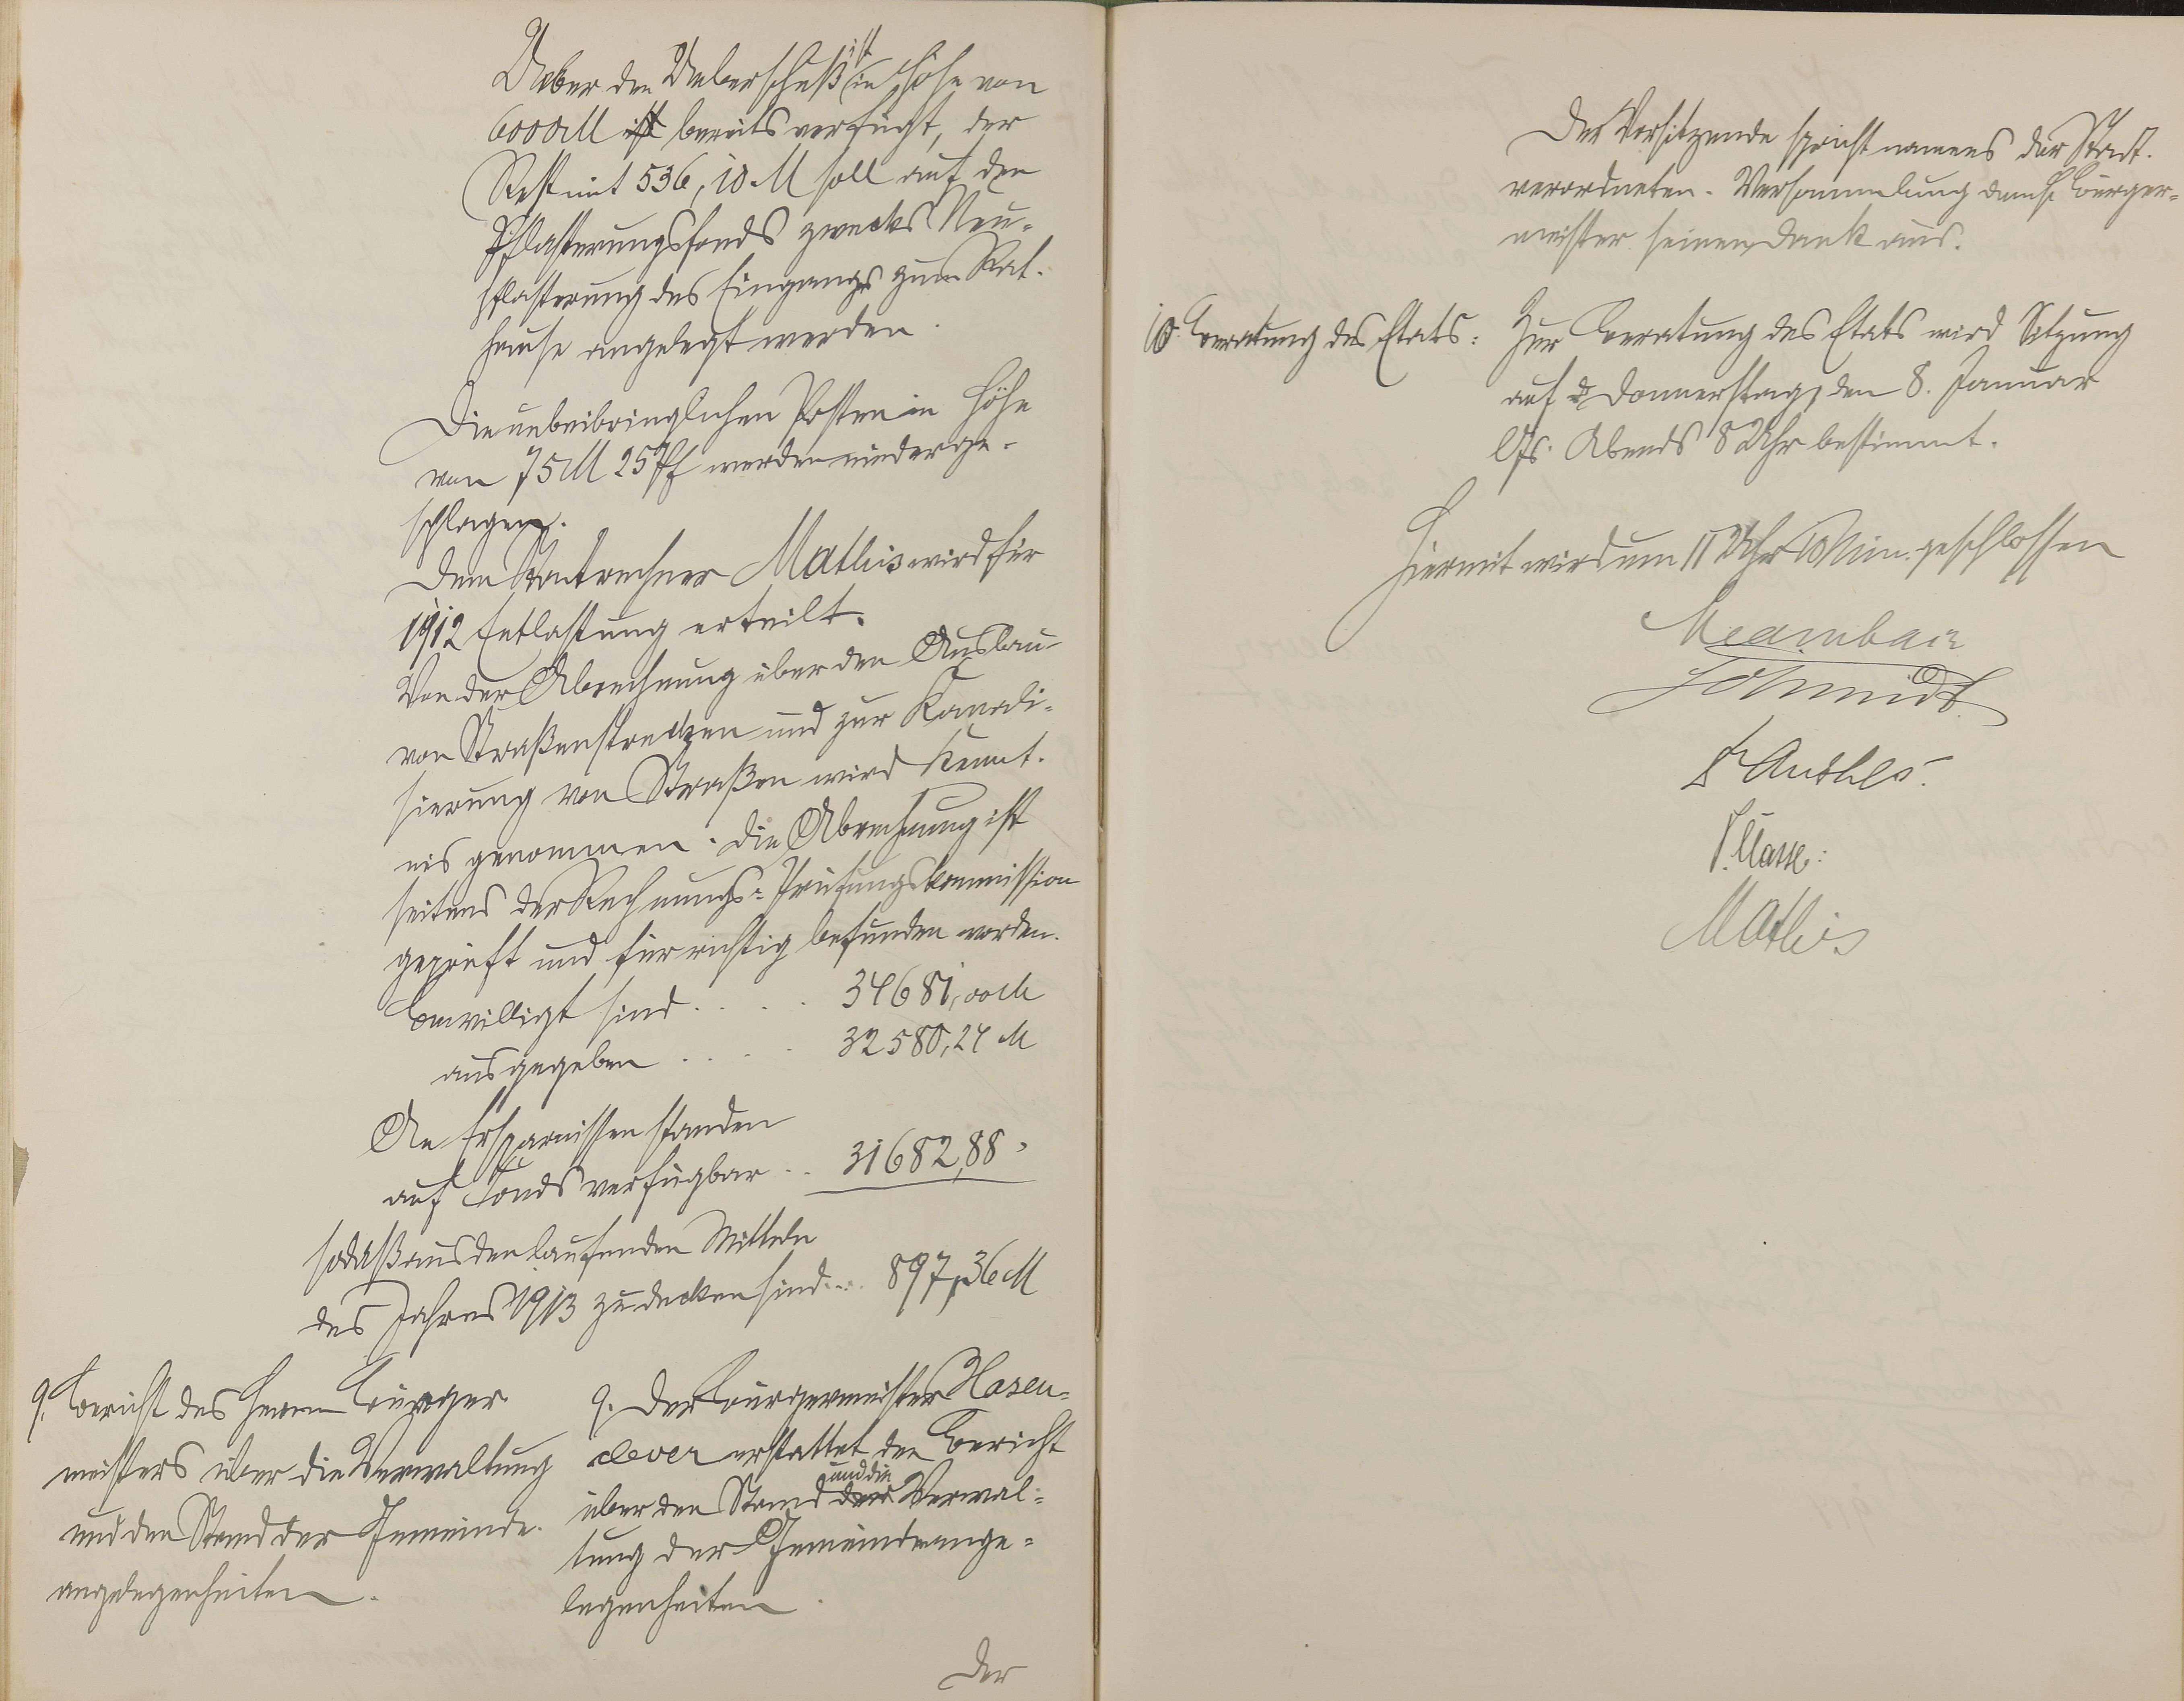 Ueber den Ueberschuß ist in Höhe von
6000 M ist bereits verfügt, der
Rest mit 536,10 M soll auf den
Pflasterungsfonds zwecks Neu-
pflasterung des Eingangs zum Rat-
hause angelegt werden.
Die unbeibringlichen Posten in Höhe
von 75 M 25 Pf werden niederge-
schlagen.
Dem Stadtrechner Mathis wird für
1912 Entlastung erteilt.
Von der Abrechnung über den Ausbau
von Straßenstrecken und zur Kanali-
sierung von Straßen wird Kennt-
nis genommen. Die Abrechnung ist
seitens der Rechnungs-Prüfungskommission
geprüft und für richtig befunden worden.
Bewilligt sind . . . . 34681,00 M
ausgegeben . . . . 32580,24 M
An Ersparnissen standen
auf Fonds verfügbar . . 31682,88 "
sodaß aus den laufenden Mitteln
des Jahres 1913 zu decken sind . . . 897,36 M
9. Bericht des Herrn Bürger
meisters über die Verwaltung
und den Stand der Gemeinde-
angelegenheiten.
9. Der Bürgermeister Hasen-
clever erstattet den Bericht
über den Stand der und die Verwal-
tung der Gemeindeange-
legenheiten.
Der
Der Vorsitzende spricht namens der Stadt-
verordneten-Versammlung dem H. Bürger-
meister seinen Dank aus.
10. Beratung des Etats:
Zur Beratung des Etats wird Sitzung
auf d. Donnerstag, den 8. Januar
lfs. Abends 8 Uhr bestimmt.
Hiermit wird um 11 Uhr 10 Min. geschlossen
Schmidt
Mathis